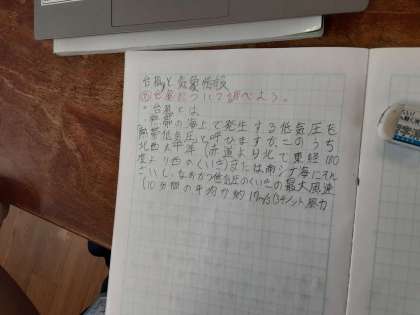 台風と気象情報
台風について調べよう。
・台風とは、
・熱帯の海上で発生する低気圧を
熱帯低気圧と呼びますが、このうち
北西太平洋(赤道より北で東経180
度より西のくいき)または南シナ海にそん
ざいし、なおかつ低気圧のくいきの最大風速
(10分間の平均が約17m/s(34ノット、風力